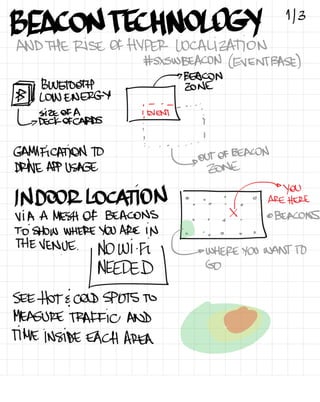 BEACON TECHNOLOGY 1/3
AND THE RISE OF HYPER LOCALIZATION
#SXSWBEACON (EVENTBASE)
BLUETOOTH
LOW ENERGY
SIZE OF A
DECK OF CARDS
BEACON
ZONE
EVENT
OUT OF BEACON
ZONE
GAMIFICATION TO
DRIVE APP USAGE
INDOOR LOCATION
VIA A MESH OF BEACONS
TO SHOW WHERE YOU ARE IN
THE VENUE.
NO Wi-Fi
NEEDED
X
YOU
ARE HERE
BEACONS
WHERE YOU WANT TO
GO
SEE HOT & COLD SPOTS TO
MEASURE TRAFFIC AND
TIME INSIDE EACH AREA